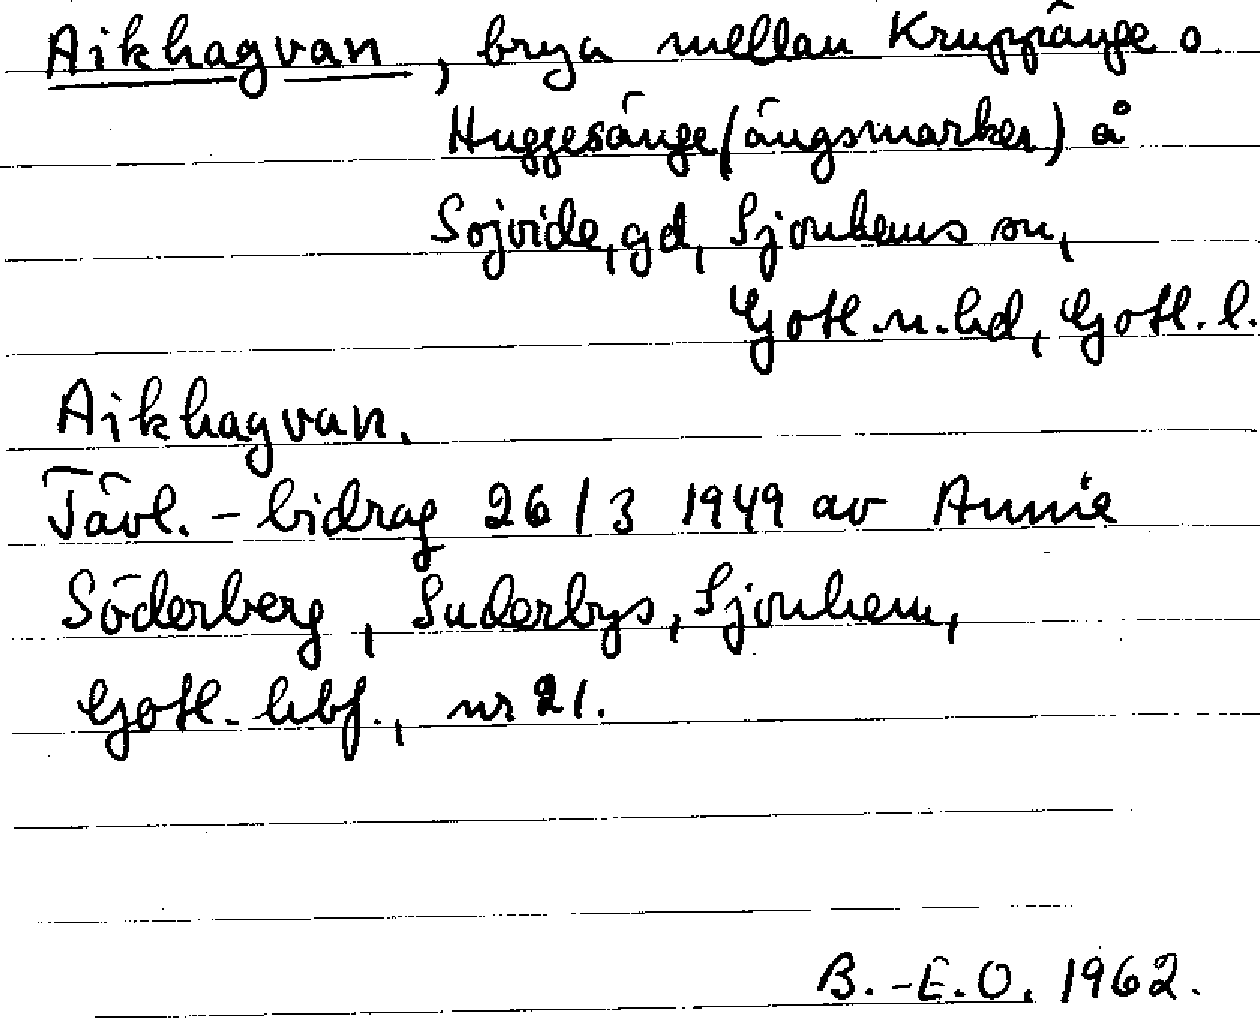 Aikhagvan, brya mellan Kruppänge o
Huggesänge (ängsmarker) å
Sojvide, gd, Sjonhems sn,
Gotl. n. hd, Gotl. l.
Aikhagvan.
Tävl. - bidrag 26/3 1949 av Annie
Söderberg, Suderbys, Sjonhem,
Gotl. hbf., nr 21.
B.-E.O. 1962.